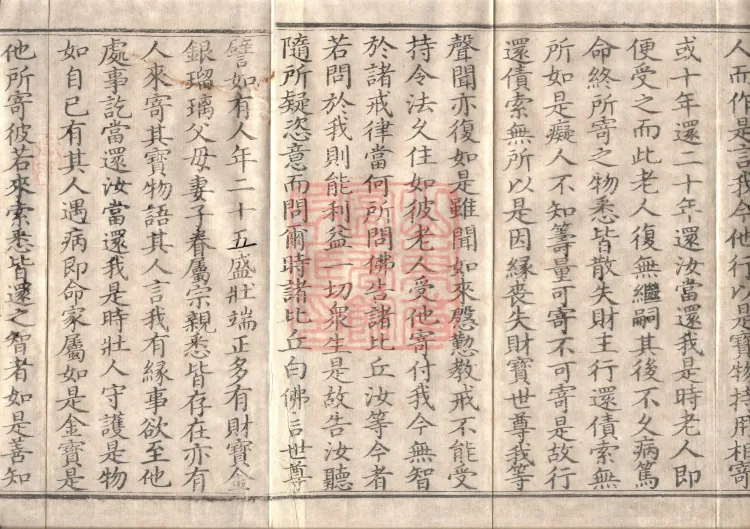 人而作是言我今他行以是寶物持用相寄
或十年還二十年還汝當還我是時老人即
便受之而此老人復無繼嗣其後不久病篤
命終所寄之物悉皆散失財主行還債索無
所如是癡人不知籌量可寄不可寄是故行
還債索無所以是因緣喪失財寶世尊我等
聲聞亦復如是雖聞如來慇懃教戒不能受
持令法久住如彼老人受他寄付我今無智
於諸戒律當何所問佛告諸比丘汝等今者
若問於我則能利益一切衆生是故告汝聽
隨所疑恣意而問爾時諸比丘白佛言世尊
譬如有人年二十五盛壯端正多有財寶金
銀瑠璃父母妻子眷屬宗親悉皆存在亦有
人來寄其寶物語其人言我有緣事欲至他
處事訖當還汝當還我是時壯人守護是物
如自已有其人遇病即命家屬如是金寶是
他所寄彼若來索悉皆還之智者如是善知